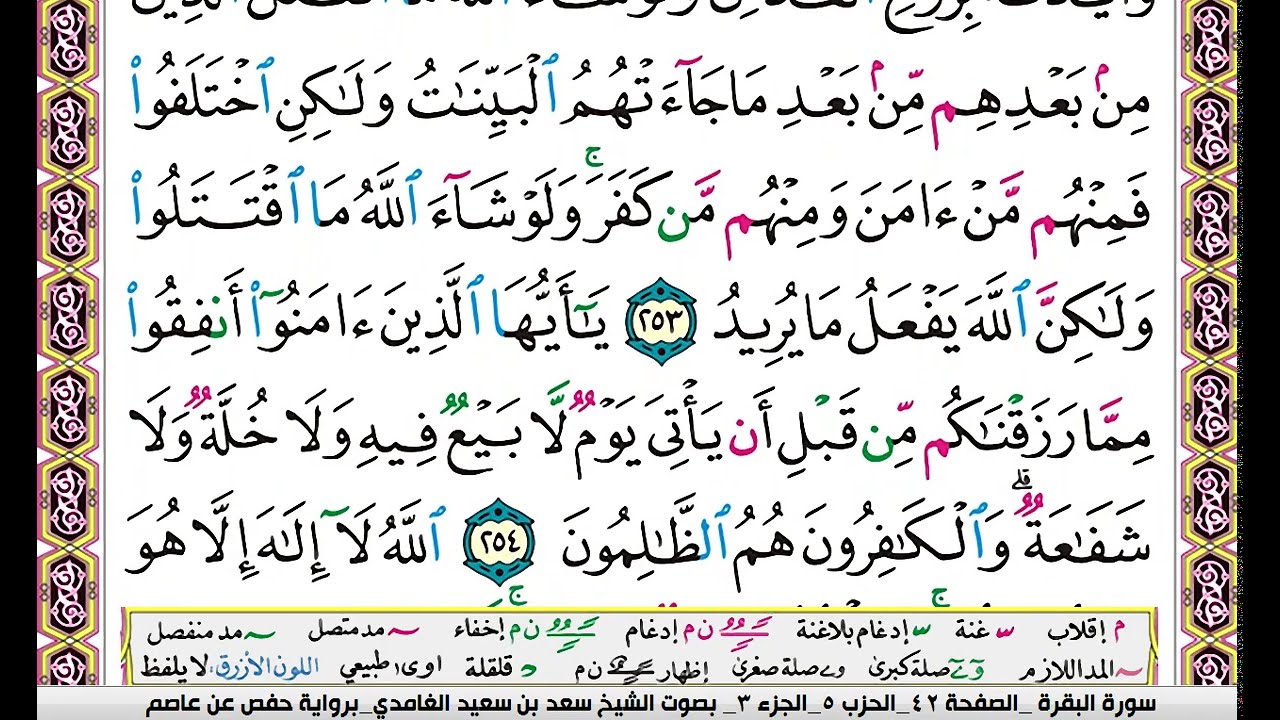 مِنۢ بَعْدِهِم مِّنۢ بَعْدِ مَا جَآءَتْهُمُ ٱلْبَيِّنَـٰتُ وَلَـٰكِنِ ٱخْتَلَفُوا۟
فَمِنْهُم مَّنْ ءَامَنَ وَمِنْهُم مَّن كَفَرَ ۚ وَلَوْ شَآءَ ٱللَّهُ مَا ٱقْتَتَلُوا۟
وَلَـٰكِنَّ ٱللَّهَ يَفْعَلُ مَا يُرِيدُ ٢٥٣ يَـٰٓأَيُّهَا ٱلَّذِينَ ءَامَنُوٓا۟ أَنفِقُوا۟
مِمَّا رَزَقْنَـٰكُم مِّن قَبْلِ أَن يَأْتِىَ يَوْمٌ لَّا بَيْعٌ فِيهِ وَلَا خُلَّةٌ وَلَا
شَفَـٰعَةٌ ۗ وَٱلْكَـٰفِرُونَ هُمُ ٱلظَّـٰلِمُونَ ٢٥٤ ٱللَّهُ لَآ إِلَـٰهَ إِلَّا هُوَ
م إقلاب ـ غنة ـ إدغام بلاغنة ـ ن م إدغام ـ ن م إخفاء ـ مد متصل ـ مد منفصل
ـ المد اللازم و ے صلة كبرى و ے صلة صغرى إظهار ـ ن م د قلقلة اوى طبيعي اللون الأزرق: لا يلفظ
سورة البقرة _الصفحة ٤٢_الحزب ٥_الجزء ٣_ بصوت الشيخ سعد بن سعيد الغامدي_برواية حفص عن عاصم